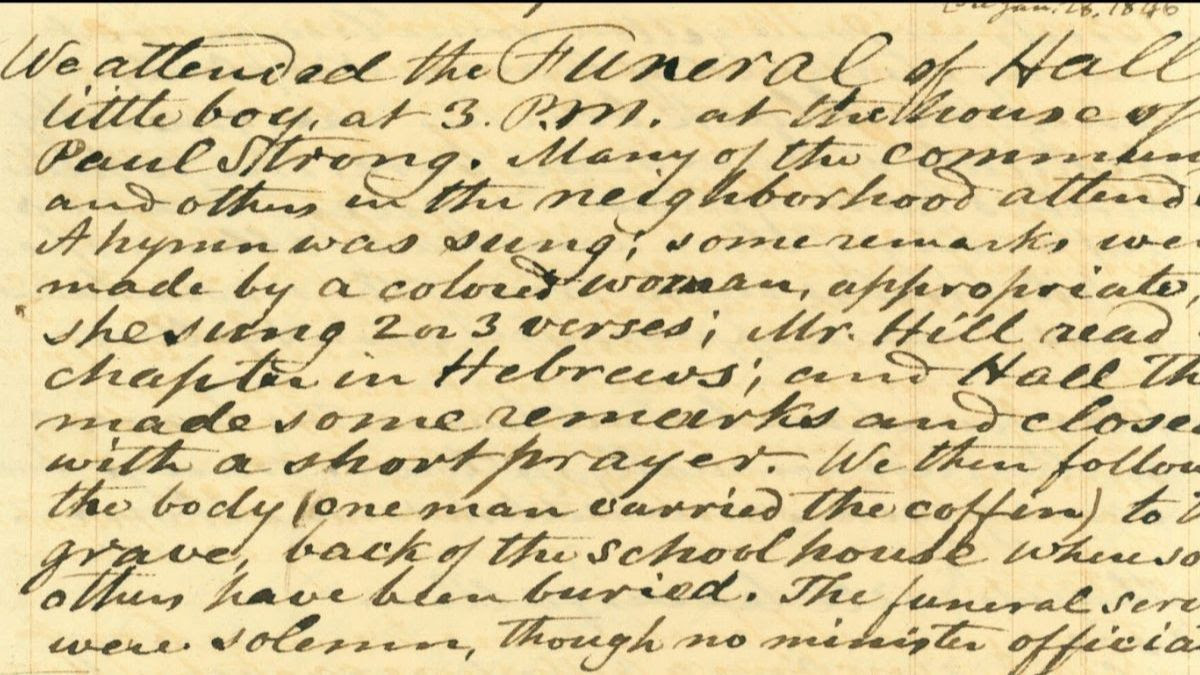 Jan. 18, 1846
We attended the Funeral of Hall
little boy, at 3. P.M. at the house of
Paul Strong. Many of the commun
and others in the neighborhood attend
A hymn was sung; some remarks we
made by a colored woman, appropriate,
she sung 2 or 3 verses; Mr. Hill read
chapter in Hebrews; and Hall Th
made some remarks and close
with a short prayer. We then follow
the body (one man carried the coffin) to
grave, back of the schoolhouse where so
others have been buried. The funeral serv
were solemn, though no minister officia